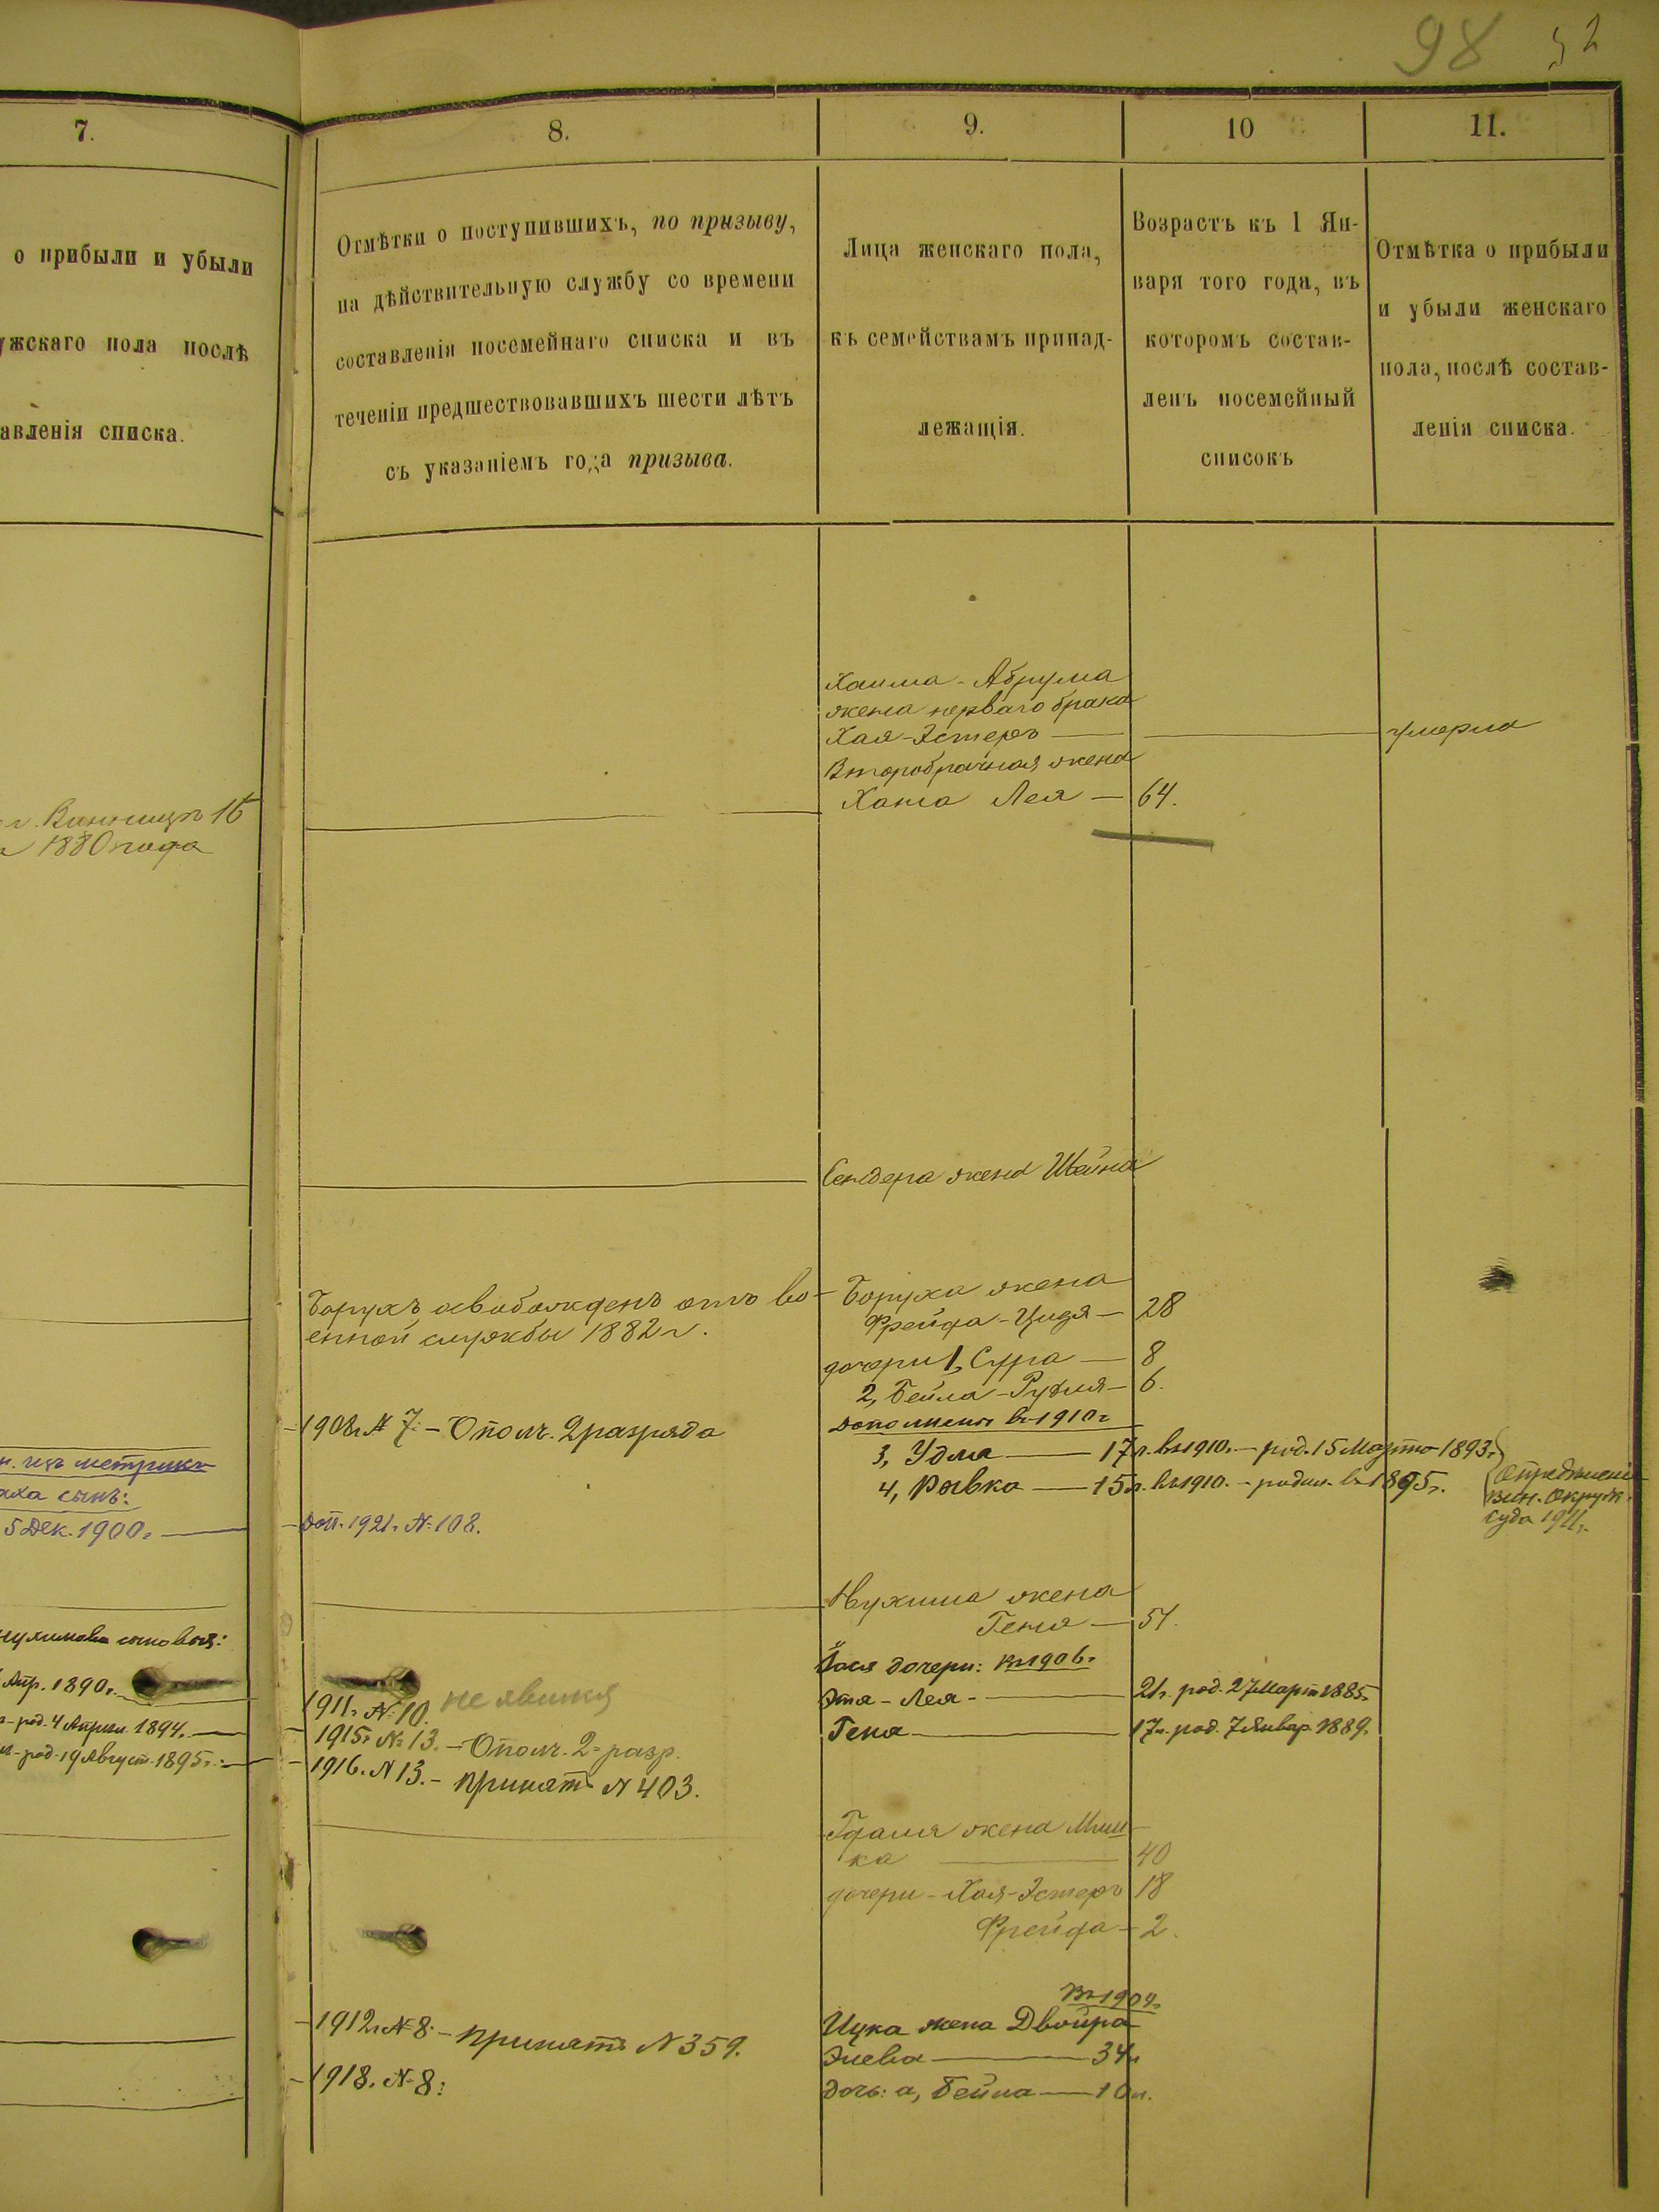 98 52
7.
о прибыли и убыли
ужскаго пола послѣ
авленія списка.
г. Винницѣ 16
1880 года
н. изъ метрикъ
сынъ:
5 Дек. 1900 г.
сыновья:
Апр. 1890 г.
род. 4 Апрѣл. 1894.
род. 19 Август. 1895 г.
8.
Отмѣтки о поступившихъ, по призыву,
на дѣйствительную службу со времени
составленія посемейнаго списка и въ
теченіи предшествовавшихъ шести лѣтъ
съ указаніемъ года призыва.
Борухъ освобожденъ отъ во-
енной службы 1882 г.
1908 г. № 7. – Ополч. 2 разряда
доп. 1921 г. № 108.
1911 г. № 10. не явился
1915 г. № 13. – Ополч. 2 разр.
1916. № 13. – принятъ № 403.
1912 г. № 8. – принятъ № 359.
1918. № 8:
9.
Лица женскаго пола,
къ семействамъ принад-
лежащія.
Хаима-Абрума
жена перваго брака
Хая-Эстеръ
Второбрачная жена
Хана Лея — 64.
Сендера жена Шейна
Боруха жена
Фрейда-Цидя — 28
дочери 1, Сура — 8
2, Бейла-Рухля — 6.
дополнены въ 1910 г.
3, Удма — 17 л. въ 1910. – род. 15 Марта 1893 г.
4, Рывка — 15 л. въ 1910. – родил. въ 1895 г.
Нухима жена
Геня — 51.
дочери: въ 1906 г.
Этя-Лея — 21 г. род. 27 Март. 1885 г.
Геня — 17 л. род. 7 Январ. 1889 г.
Гдаля жена Мин-
ка — 40
дочери – Хая-Эстеръ 18
Фрейда — 2.
въ 1904 г.
Ицка жена Двойра
34 л.
дочь: а, Бейла — 10 л.
10
Возрастъ къ 1 Ян-
варя того года, въ
которомъ состав-
ленъ посемейный
списокъ
11.
Отмѣтка о прибыли
и убыли женскаго
пола, послѣ состав-
ленія списка.
умерла
Опредѣленіе
Вин. Окруж.
Суда 1911 г.